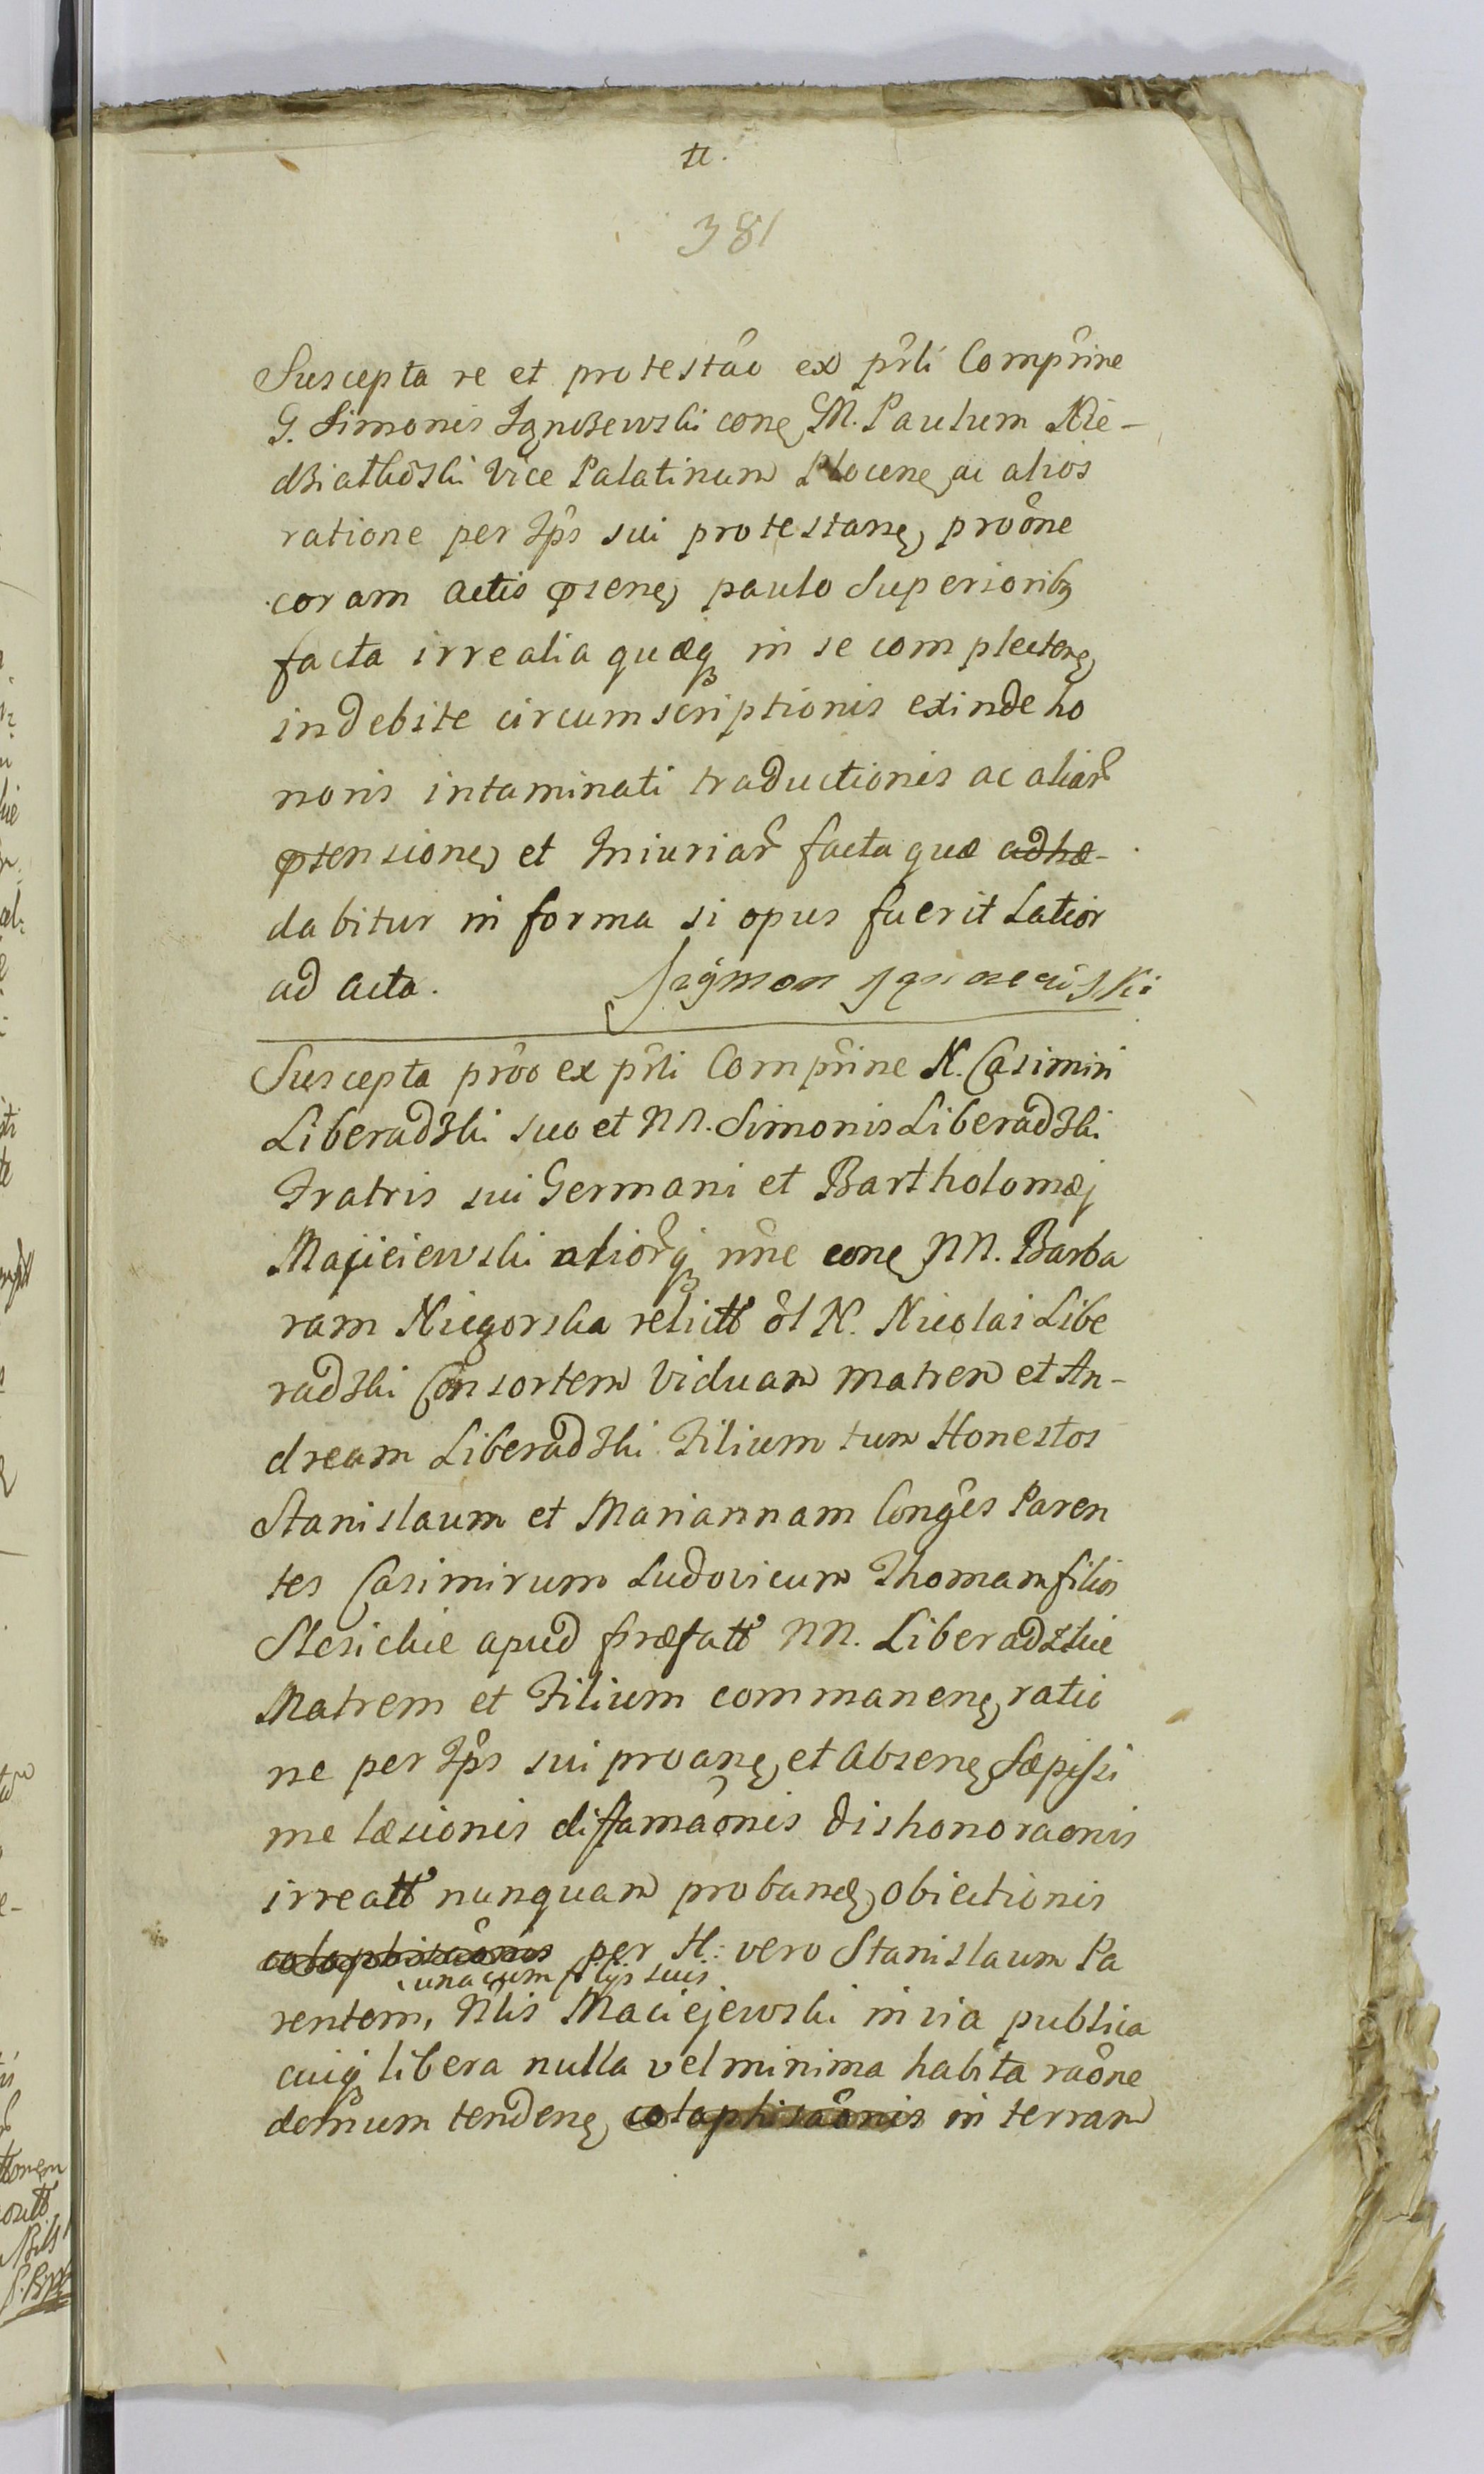 tt.
381
Suscepta re et protestâo ex pr̂li Compr̂ine
G. Simonis IgnoZewski cone M. Paulum Nie-
dZiałkoski Vice Palatinum Plocene ac alios
ratione per Ip̂s sui protestane, proône
coram actis p̱sene, paulo Superiorib9
facta irrealia quæq in se complectene,
indebite circumscriptionis exinde ho
noris intaminati traductionis ac aliar̂
p̱tensione, et Iniuriar̂ facta quæ adhæ-
dabitur in forma si opus fuerit Latior
ad acta.
Suscepta prôo ex pr̂li Compr̂ine N. Casimiri
Liberadzki suo et NN. Simonis Liberadzki
Fratris sui Germani et Bartholomæj
Majieiewski aliorq̂ nn̂e cone NN. Barba
ram Niegorska relictt ôl N. Nicolai Libe
radzki Consortem Viduam matrem et An-
dream Liberadzki Filium tum Honestos
Stanislaum et Mariannam Conĝes Paren
tes Casimirum Ludovicum Thomam filios
Slesickie apud præfatt NN. Liberadzkie
Matrem et Filium commanene, ratio
ne per Ip̂s sui proane, et Absene, Sæpissi
me læsionis diffamaônis dishonoraonis
irreatt nunquam probane, obiectionis
colaphisaônis per H: vero Stanislaum Pa
una cum filijs suis
rentem, N̂lis Maciejewski in via publica
cuiq libera nulla vel minima habita raône
domum tendene, colaphisaônis in terram